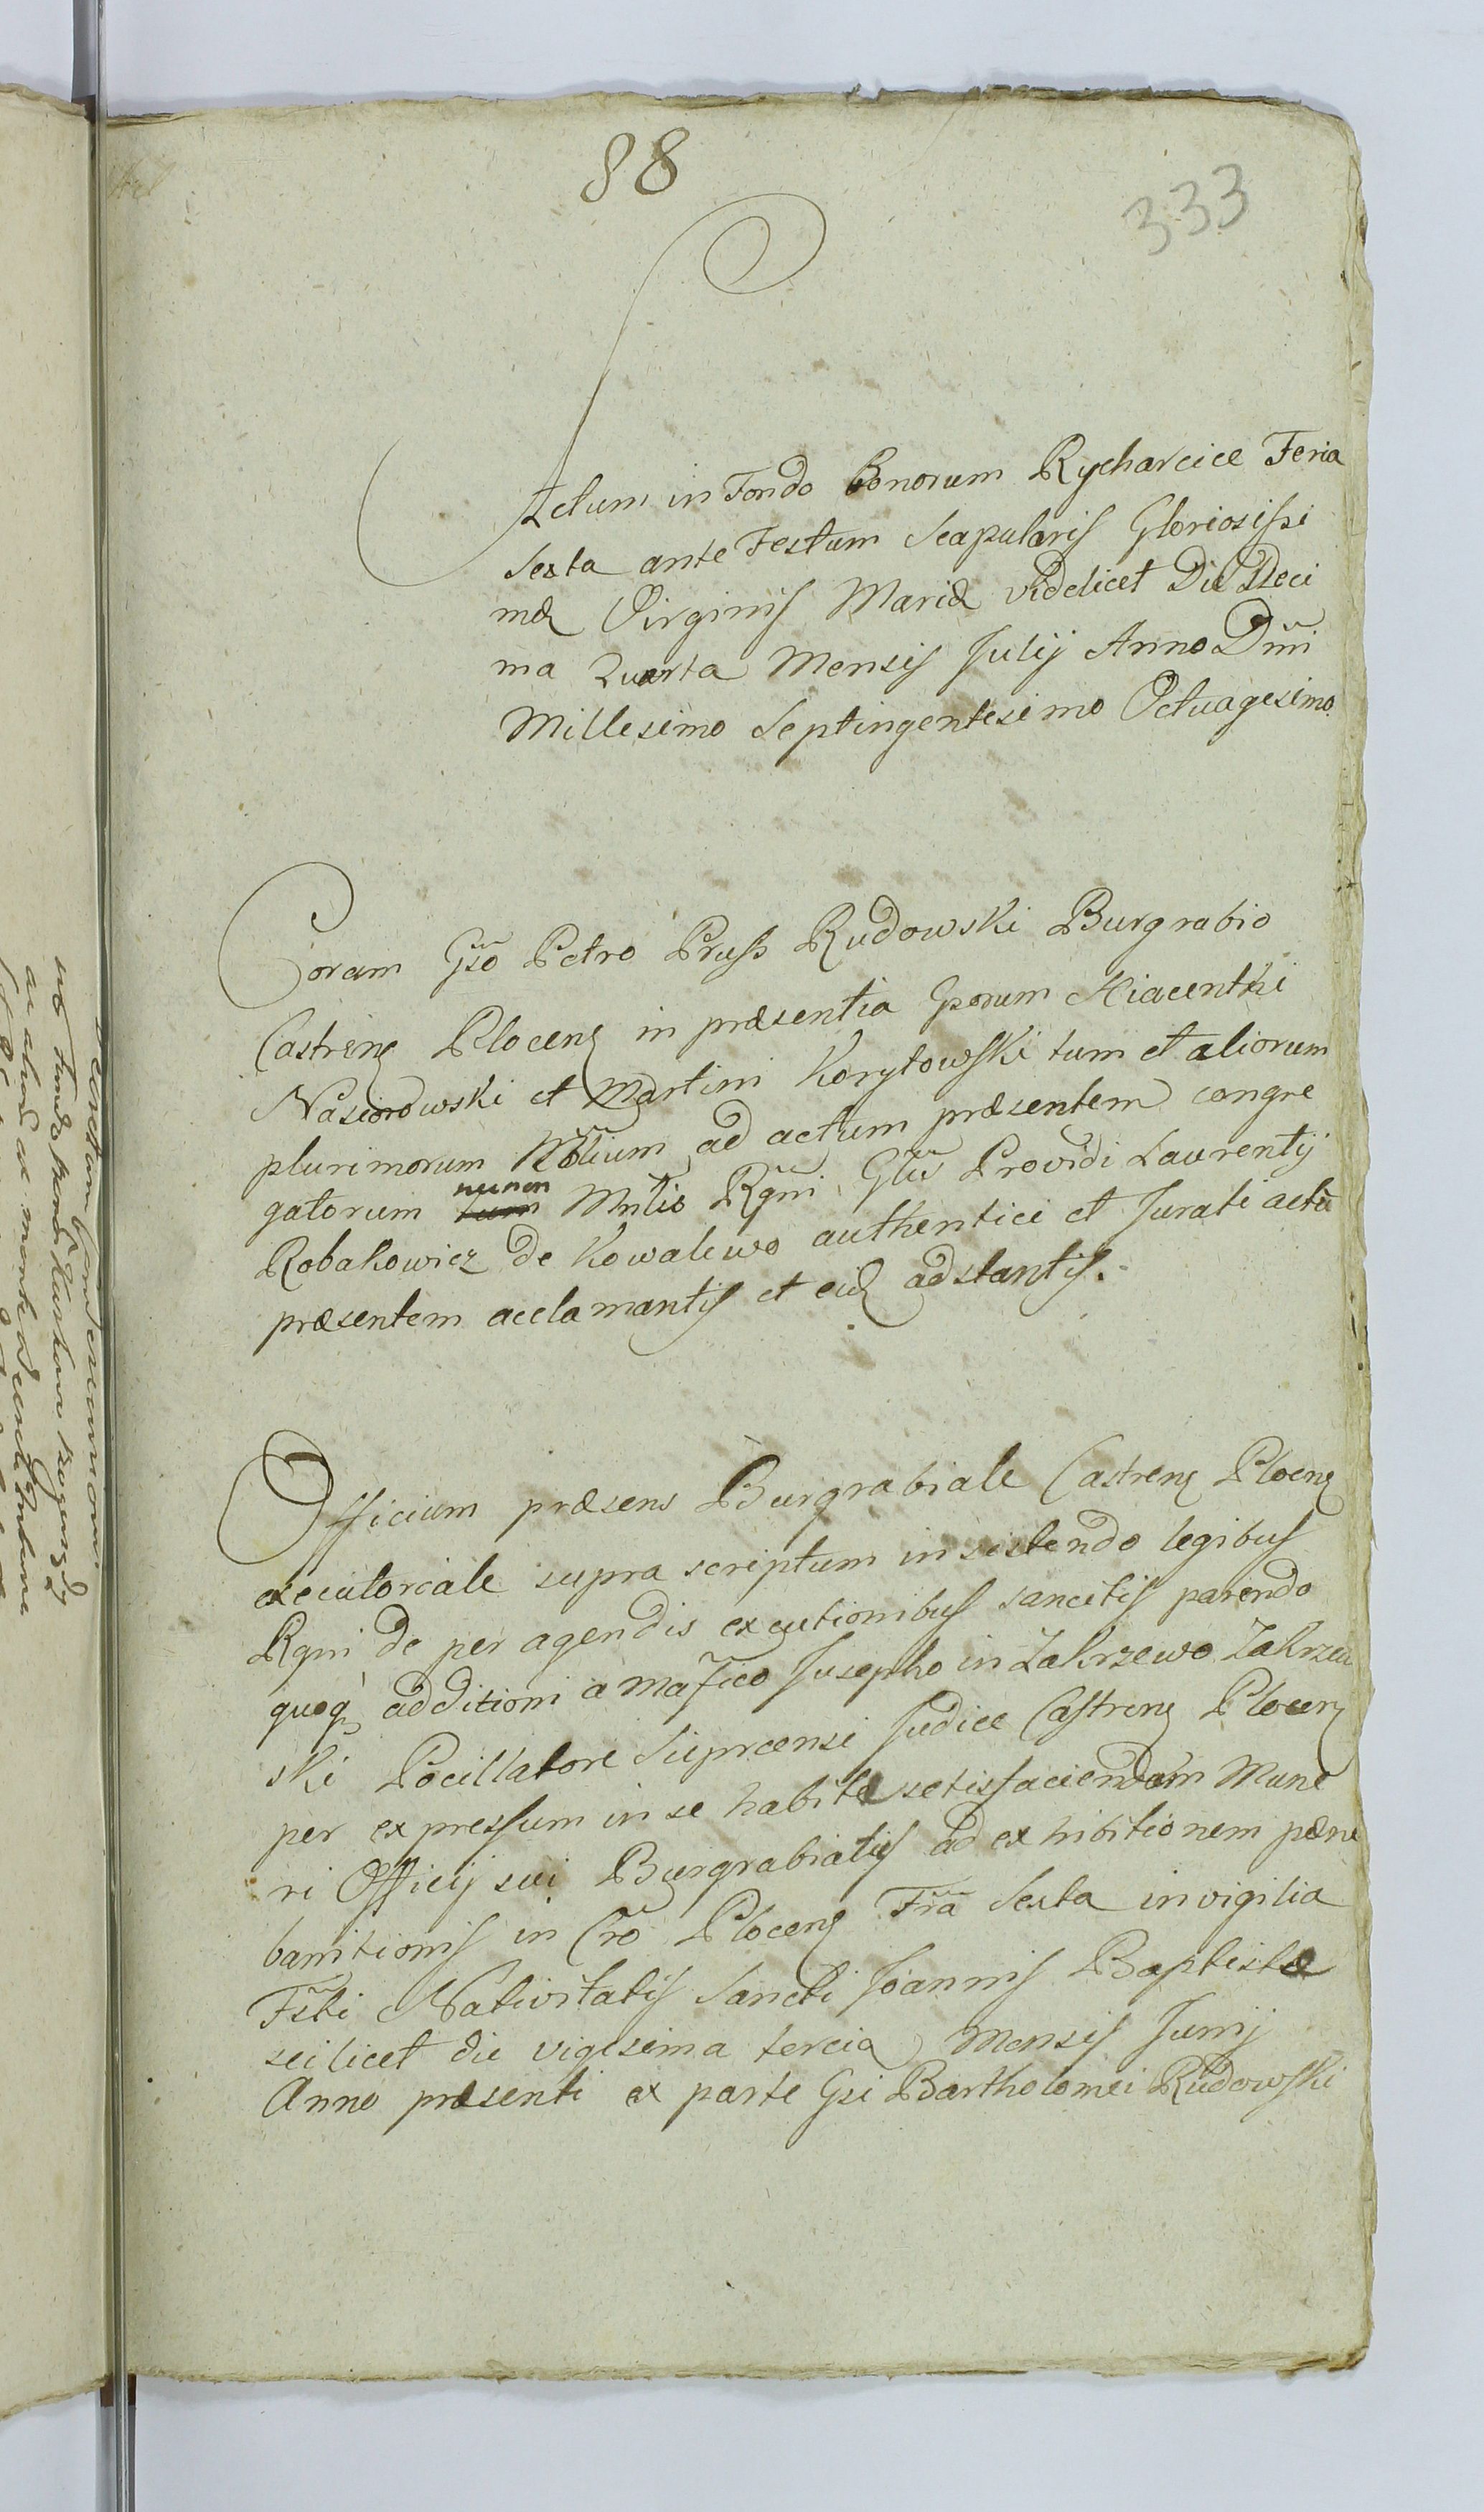 88
333
Actum in Fondo Bonorum Rycharcice Feria
Sexta ante Festum Scapularis Gloriosissi
mæ Virginis Mariæ videlicet Die Deci
ma Quarta Mensis Julij Anno Dñi
Millesimo Septingentesimo Octuagesimo
Coram Gso Petro Pruss Rudowski Burgrabio
Castrenz Plocenz in præsentia Gsorum Hiacenthi
Nasiorowski et Martini Korytowski tum et aliorum
plurimorum Nobilium ad actum præsentem congre
gatorum necnon Mnlis Rgni Glis Providi Laurentij
Robakowicz de Kowalewo authentici et Jurati actū
præsentem acclamantis et eid adstantis.
Officium præsens Burgrabiale Castrenz Plocenz
executoriale supra scriptum insistendo legibus
Rgni de per agendis executionibus sancitis parendo
quoq additioni a Mafico Jusepho in Zakrzewo Zakrzew
ski Pocillatore Sieprcensi Judice Castrenz Plocenz
per expressum in se habitæ satisfaciendam Mune
ri Officij sui Burgrabialis ad exhibitionem pæne
bannitionis in Cro Plocenz Fria Sexta in vigilia
Fsti Nativitatis Sancti Joannis Baptistæ
scilicet die vigesima tercia Mensis Junij
Anno præsenti ex parte Gsi Bartholomei Rudowski